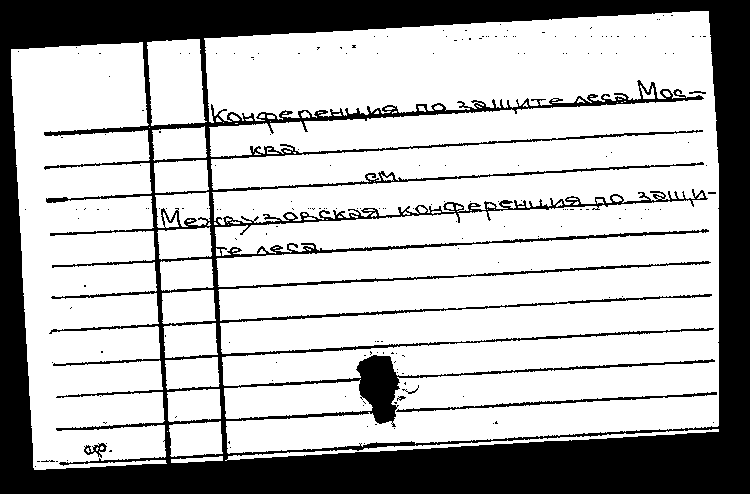 Конференция по защите леса. Мос-
ква.
см.
Межвузовская конференция по защи-
те леса.